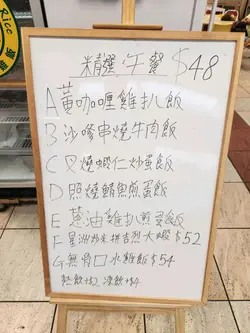 Rice
精選午餐 $48
A 黃咖喱雞扒飯
B 沙嗲串燒牛肉飯
C 叉燒蝦仁炒蛋飯
D 照燒鯖魚煎蛋飯
E 蔥油雞扒煎蛋飯
F 星洲炒米拼吉烈大蝦 $52
G 無骨口水雞飯 $54
熱飲 凍飲